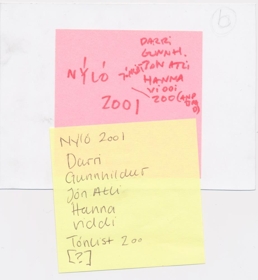 b
NÝLÓ
2001
DARRI
GUNNH.
JÓN ATLI
HANNA
VIDDI
NÝLÓ 2001
Darri
Gunnhildur
Jón Atli
Hanna
Viddi
Tónlist 200
[?]